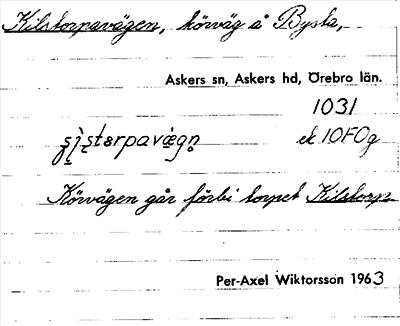 Kilstorpavägen, körväg å Bysta,
Askers sn, Askers hd, Örebro län.
1031
ek 10F0g
Körvägen går förbi torpet Kilstorp
Per-Axel Wiktorsson 1963